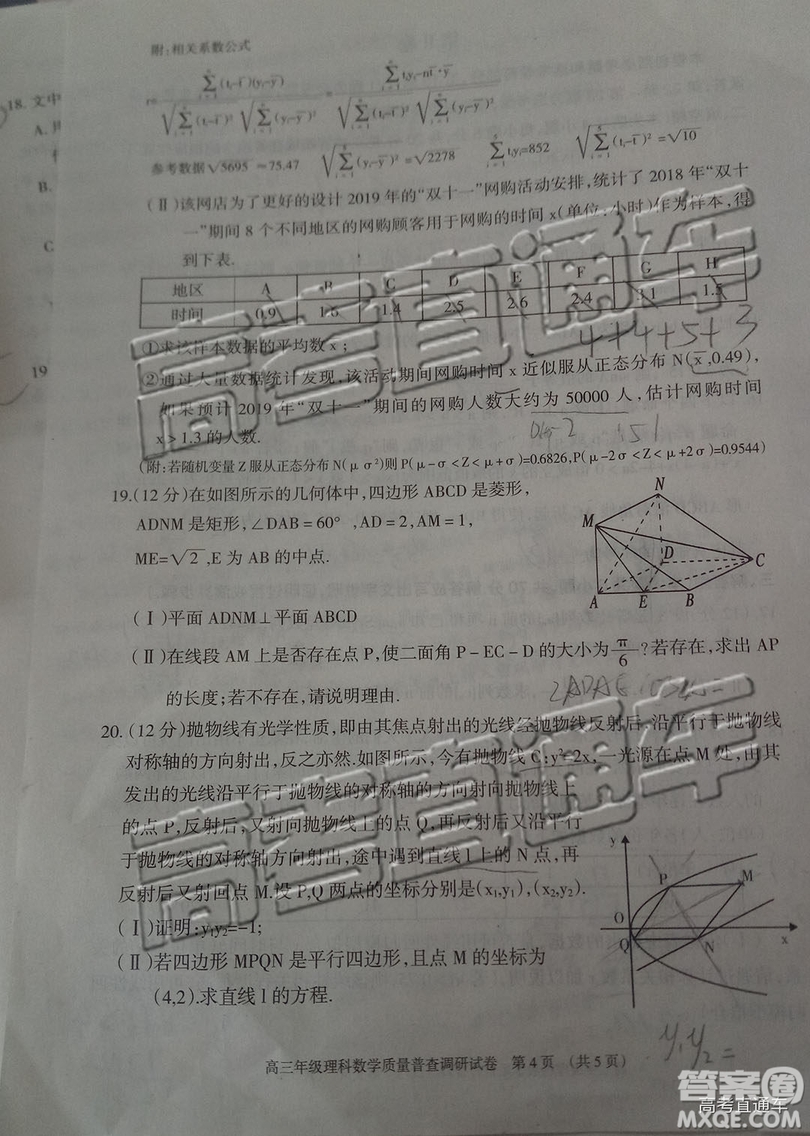 附:相关系数公式
r= \frac{\sum_{i=1}^{n}(t_i-\bar{t})(y_i-\bar{y})}{\sqrt{\sum_{i=1}^{n}(t_i-\bar{t})^2}\sqrt{\sum_{i=1}^{n}(y_i-\bar{y})^2}} = \frac{\sum_{i=1}^{n}t_iy_i-n\bar{t}·\bar{y}}{\sqrt{\sum_{i=1}^{n}(t_i-\bar{t})^2}\sqrt{\sum_{i=1}^{n}(y_i-\bar{y})^2}}
参考数据√5695 =75.47 \sqrt{\sum_{i=1}^{5}(y_i-\bar{y})^2}=√2278 \sum_{i=1}^{5}t_iy_i=852 \sqrt{\sum_{i=1}^{5}(t_i-\bar{t})^2}=√10
(Ⅱ)该网店为了更好的设计 2019 年的“双十一”网购活动安排,统计了 2018 年“双十
一”期间 8 个不同地区的网购顾客用于网购的时间 x(单位:小时)作为样本,得
到下表.
地区 A B C D E F G H
时间 0.9 1.6 1.4 2.5 2.6 2.4 3.1 1.5
4+4+5+3
①求该样本数据的平均数x̄;
②通过大量数据统计发现,该活动期间网购时间 x 近似服从正态分布 N(x̄,0.49),
如果预计 2019 年“双十一”期间的网购人数大约为 50000 人,估计网购时间
x>1.3 的人数.
(附:若随机变量 Z 服从正态分布 N(μ σ²)则 P(μ-σ<Z<μ+σ)=0.6826,P(μ-2σ<Z<μ+2σ)=0.9544)
19.(12 分)在如图所示的几何体中,四边形 ABCD 是菱形,
ADNM 是矩形,∠DAB=60°,AD=2,AM=1,
ME=√2,E 为 AB 的中点.
N
M
D
C
A
E
B
(Ⅰ)平面 ADNM⊥平面 ABCD
(Ⅱ)在线段 AM 上是否存在点 P,使二面角 P-EC-D 的大小为π/6?若存在,求出 AP
的长度;若不存在,请说明理由.
20.(12 分)抛物线有光学性质,即由其焦点射出的光线经抛物线反射后,沿平行于抛物线
对称轴的方向射出,反之亦然.如图所示,今有抛物线 C:y²=2x,一光源在点 M 处,由其
发出的光线沿平行于抛物线的对称轴的方向射向抛物线上
的点 P,反射后,又射向抛物线上的点 Q,再反射后又沿平行
于抛物线的对称轴方向射出,途中遇到直线 l 上的 N 点,再
反射后又射回点 M.设 P,Q 两点的坐标分别是(x₁,y₁),(x₂,y₂).
(Ⅰ)证明:y₁y₂=-1;
(Ⅱ)若四边形 MPQN 是平行四边形,且点 M 的坐标为
(4,2).求直线 l 的方程.
y
P
M
O
Q
N
x
y₁y₂=
高三年级理科数学质量普查调研试卷 第 4 页 (共 5 页)
18. 文中
A.
B.
C
19
高考直通车
高考直通车
答案卷
高考直通车
MXQE.COM